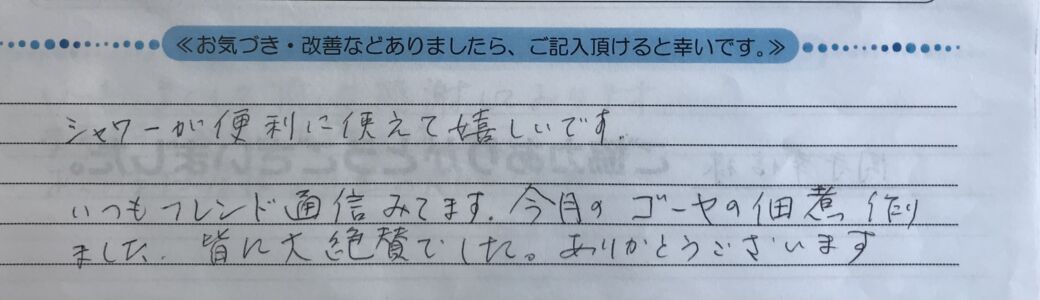 ≪お気づき・改善などありましたら、ご記入頂けると幸いです。≫
シャワーが便利に使えて嬉しいです.
いつもフレンド通信みてます. 今月のゴーヤの佃煮作り
ました. 皆に大絶賛でした。ありがとうございます